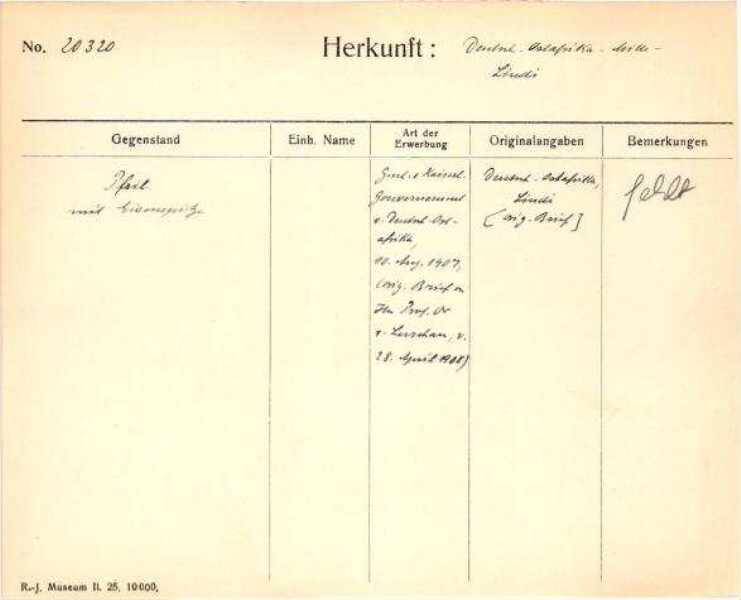 No. 20320
Herkunft: Deutsch-Ostafrika -
Lindi
Gegenstand
Einh. Name
Art der
Erwerbung
Originalangaben
Bemerkungen
Pfeil
mit Eisenspitze
Kaiserl.
Gouvernement
v. Deutsch-Ost-
afrika,
10. Aug. 1907,
(orig. Brief an
Hn Prof. Dr
v. Luschan, v.
28. April 1908)
Deutsch-Ostafrika,
Lindi
[orig. Brief]
fehlt
R.-J. Museum II. 25. 10000.